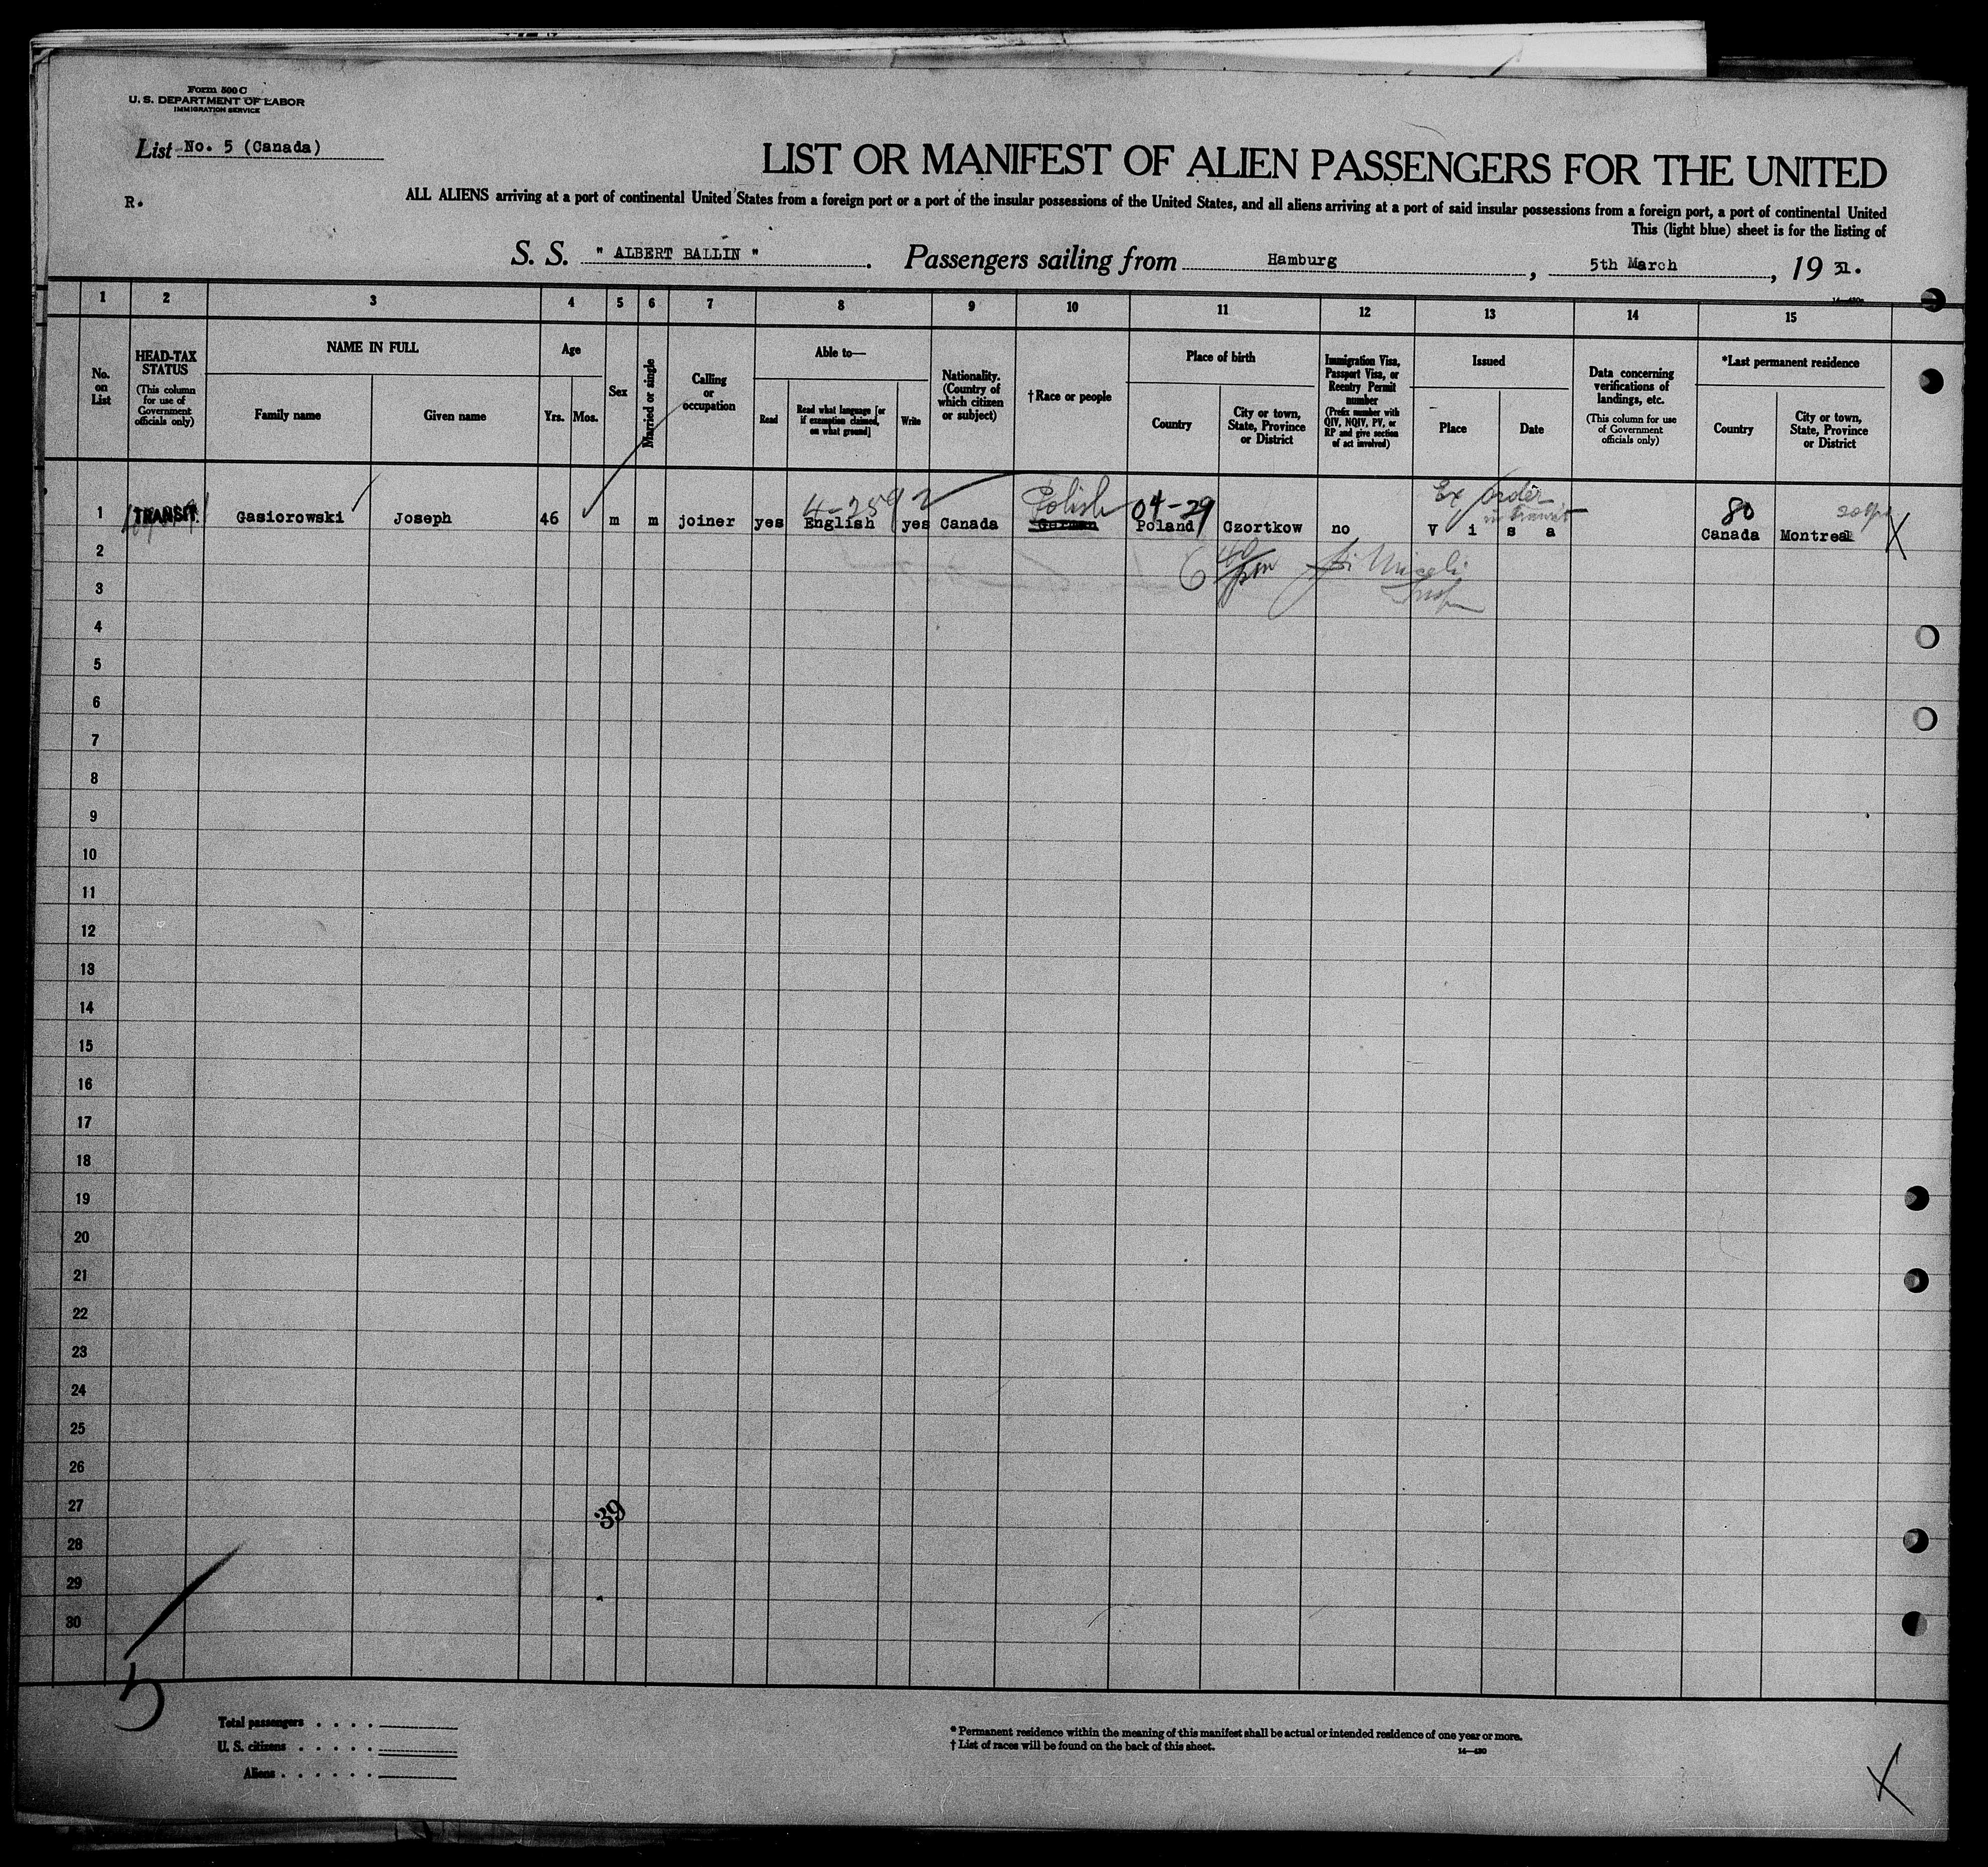 Form 500 C
U. S. DEPARTMENT OF LABOR
IMMIGRATION SERVICE
List No. 5 (Canada)
LIST OR MANIFEST OF ALIEN PASSENGERS FOR THE UNITED
R.
ALL ALIENS arriving at a port of continental United States from a foreign port or a port of the insular possessions of the United States, and all aliens arriving at a port of said insular possessions from a foreign port, a port of continental United
This (light blue) sheet is for the listing of
S. S. " ALBERT BALLIN ". Passengers sailing from Hamburg, 5th March, 19 31.
1 2 3 4 5 6 7 8 9 10 11 12 13 14 15
No. on List
HEAD-TAX STATUS
(This column for use of Government officials only)
NAME IN FULL
Family name
Given name
Age
Yrs. Mos.
Sex
Married or single
Calling or occupation
Able to—
Read
Read what language [or if exemption claimed, on what ground]
Write
Nationality. (Country of which citizen or subject)
†Race or people
Place of birth
Country
City or town, State, Province or District
Immigration Visa, Passport Visa, or Reentry Permit number
(Prefix number with QIV, NQIV, PV, or RP and give section of act involved)
Issued
Place
Date
Data concerning verifications of landings, etc.
(This column for use of Government officials only)
*Last permanent residence
Country
City or town, State, Province or District
4-259 2 Polish 04-29 Ex order in transit 80
1 TRANSIT Gasiorowski Joseph 46 m m joiner yes English yes Canada German Poland Czortkow no V i s a Canada Montreal X
2
6 40/pm
3
Insp
4
5
6
7
8
9
10
11
12
13
14
15
16
17
18
19
20
21
22
23
24
25
26
27
39
28
29
30
5
Total passengers . . . .
U. S. citizens . . . . .
Aliens . . . . . .
* Permanent residence within the meaning of this manifest shall be actual or intended residence of one year or more.
† List of races will be found on the back of this sheet.
14—430
X